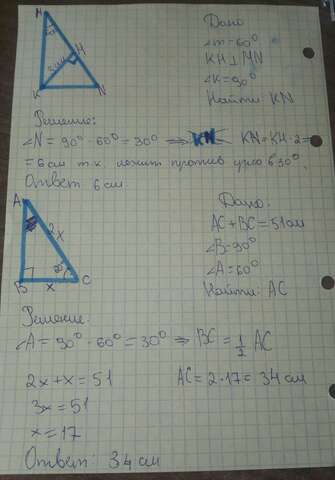 M
60°
H
3 см
K
N
Дано
∠m=60°
KH⊥MN
∠K=90°
Найти: KN
Решение:
∠N = 90° - 60° = 30° ⇒ KN KN=KH·2=
= 6 см т.к лежит против угла в 30°.
Ответ 6 см
A
2x
B
x
C
Дано:
AC+BC=51см
∠B=90°
∠A=60°
Найти: AC
Решение
∠A = 90° - 60° = 30° ⇒ BC = 1/2 AC
2x+x=51
AC=2·17= 34 см
3x=51
x=17
Ответ: 34 см